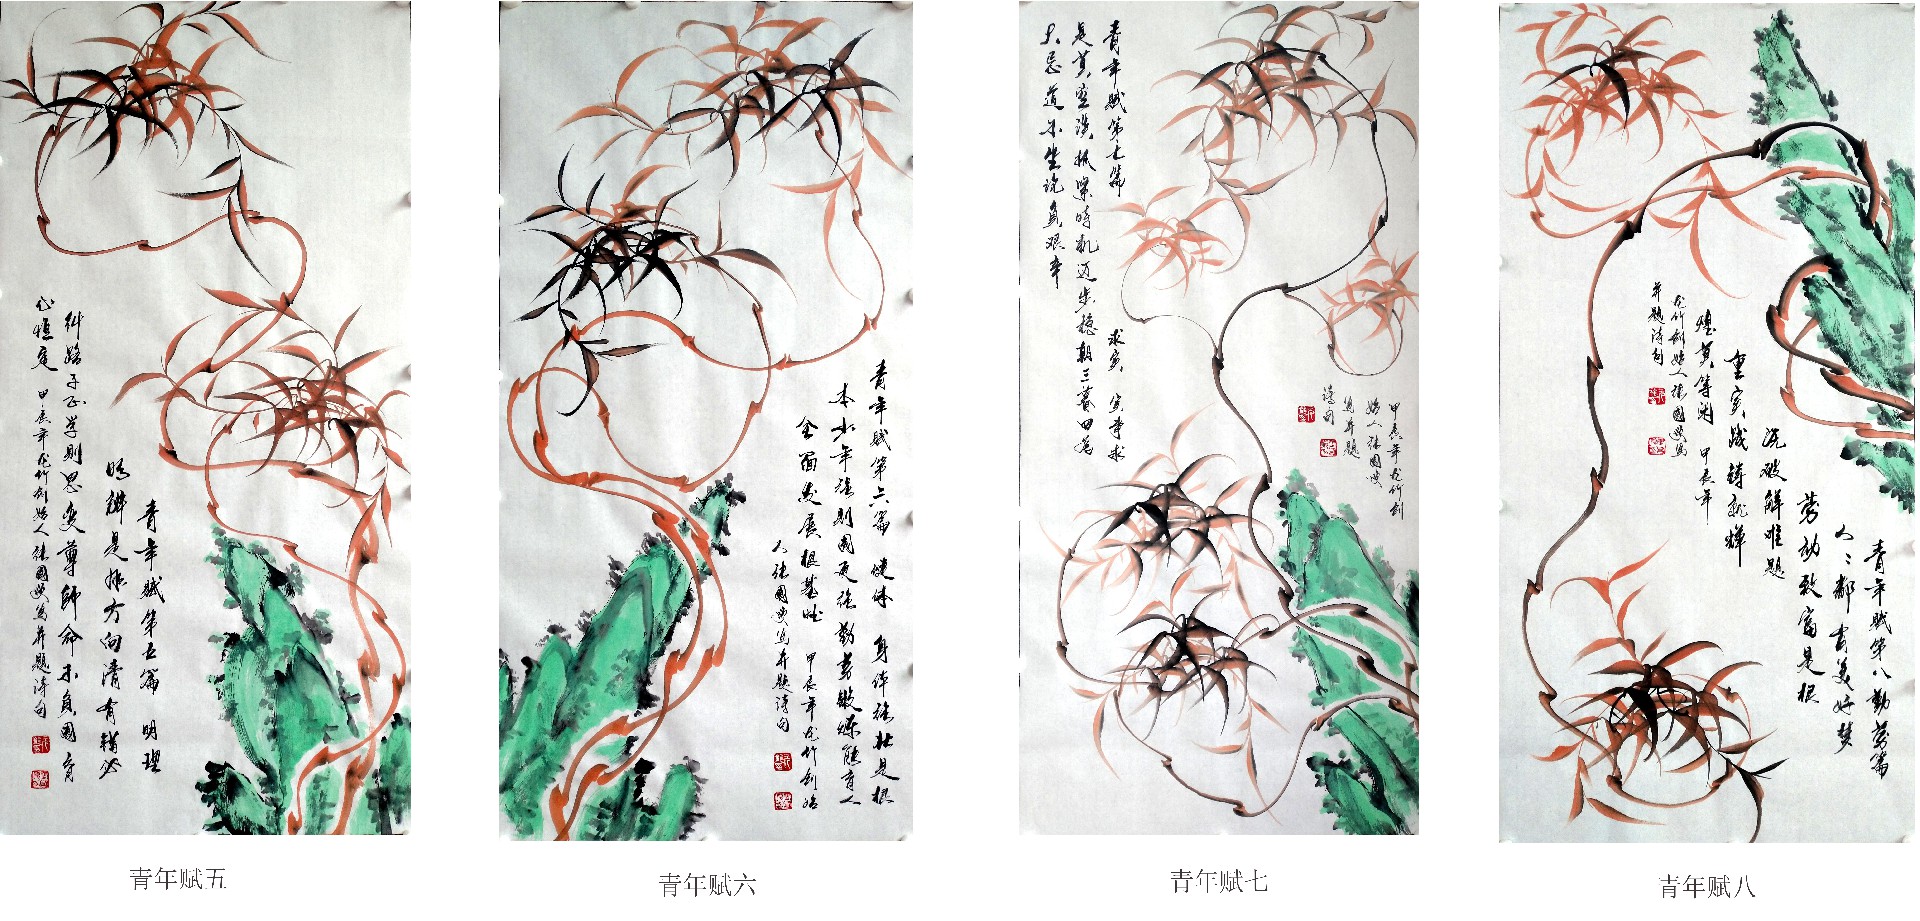 青年赋第五篇 明理
明辨是非方向清有错必
纠路子正学则思变尊师命不负国育
心恒定 甲辰年龙竹创始人张国写并题诗句
青年赋五
青年赋第六篇 健体 身体强壮是根
本少年强则国更强勤劳锻炼能育人
全面发展根基 甲辰年龙竹创始
人张国写并题诗句
青年赋六
青年赋第七篇 求实 实事求
是莫空谈抓紧时机迈步稳朝三暮四为
大忌道不坐说负艰辛
甲辰年龙竹创
始人张国
写并题
诗句
青年赋七
青年赋第八勤劳篇
人人都有美好梦
劳动致富是根
破解难题
重实践铸就辉
煌莫等闲 甲辰年
龙竹创始人张国写
并题诗句
青年赋八